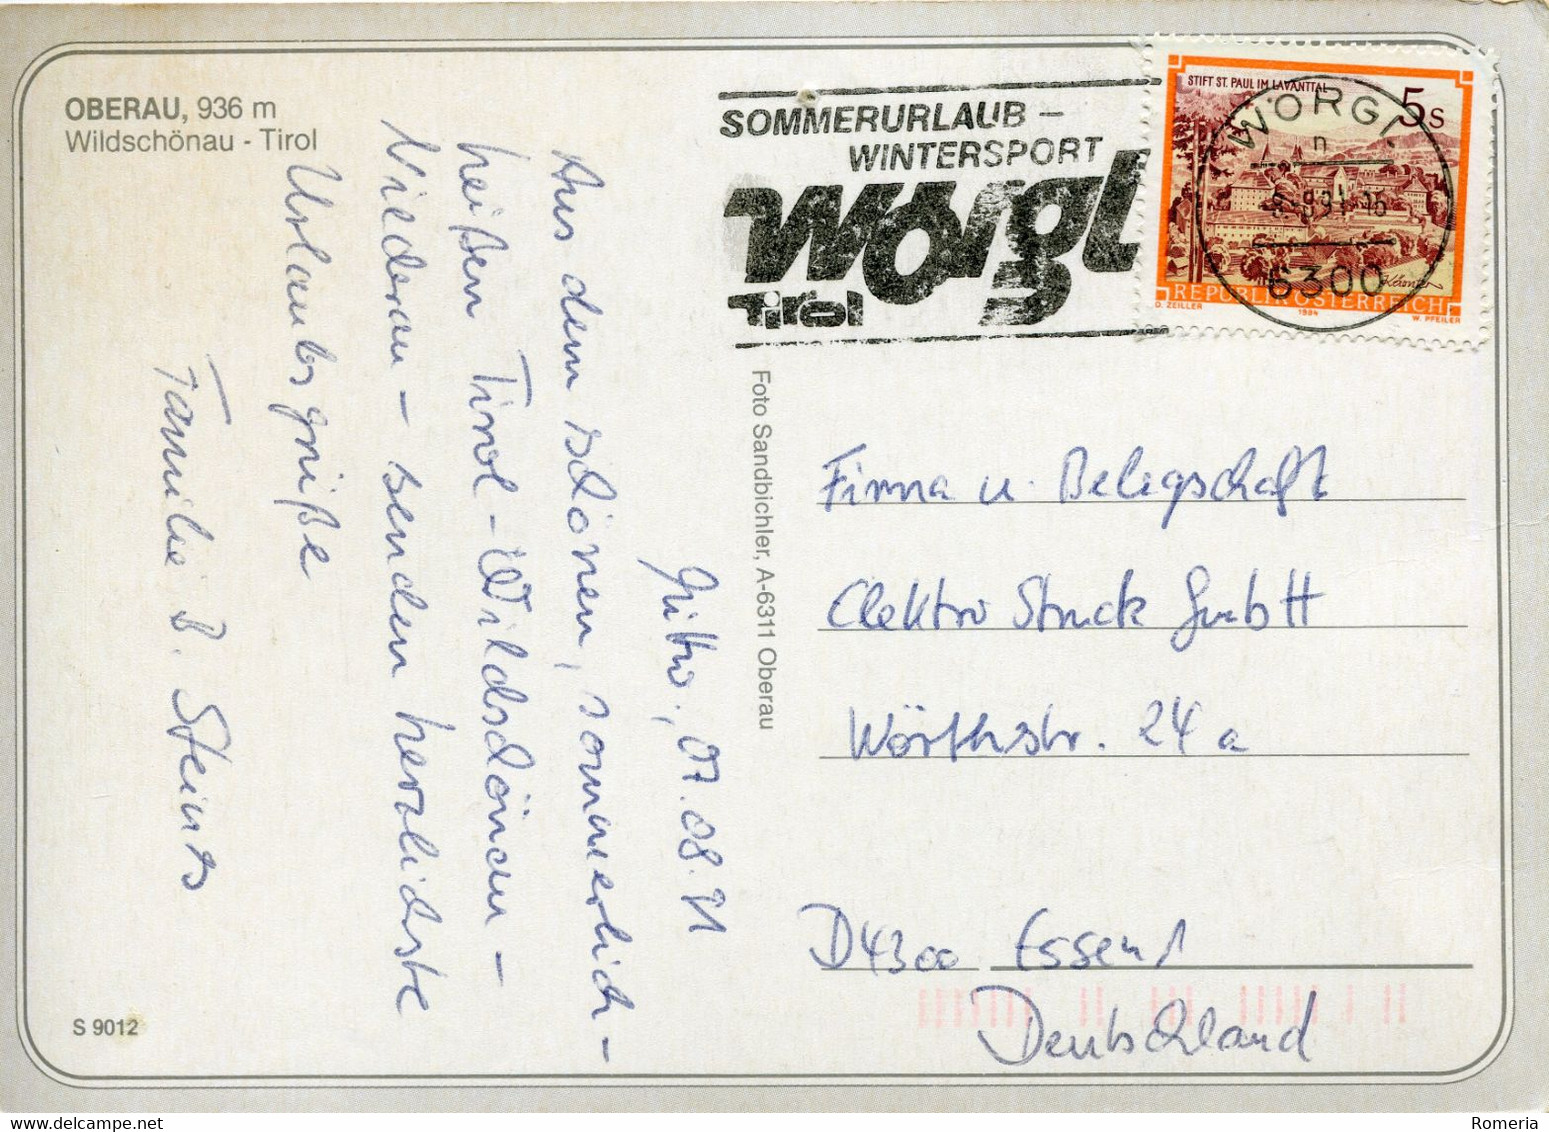 OBERAU, 936 m
Wildschönau - Tirol
SOMMERURLAUB -
WINTERSPORT
Wörgl
Tirol
STIFT ST. PAUL IM LAVANTTAL
5 S
WÖRGL
6300
REPUBLIK ÖSTERREICH
D. ZEILLER 1984 W. PFEILER
07.08.91
Aus dem schönen, sommerlich-
heißen Tirol - Wildschönau -
Niederau - senden herzlichste
Urlaubsgrüße
Familie B.
Foto Sandbichler, A-6311 Oberau
Firma u. Belegschaft
Elektro Struck GmbH
Wörthstr. 24 a
D4300 Essen 1
Deutschland
S 9012
Romeria